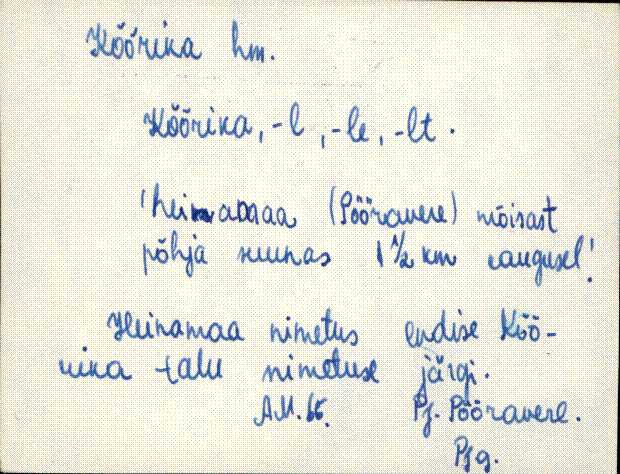 Kõõrika hm.
Kõõrika, -l, -le, -lt.
'heinamaa (Pööravere) mõisast
põhja suunas 1 1/2 km kaugusel'.
Heinamaa nimetus endise Köö-
rika talu nimetuse järgi.
A.M. 66. Pj. Pööravere.
Pjg.